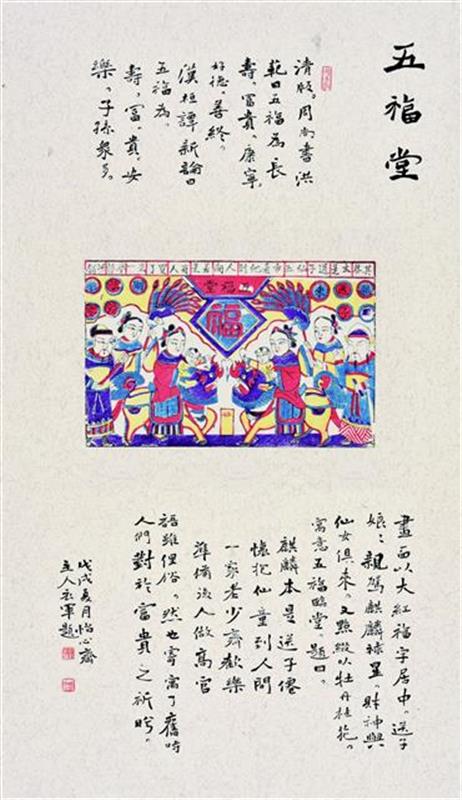 五福堂
清版。周尚書洪
範曰五福為長
壽。富貴。康寧。
好德。善終。
漢桓譚新論曰
五福為。
壽。富。貴。安
樂。子孫衆多。
堂福
福
畫面以大紅福字居中。送子
娘〻親駕麒麟祿星。財神與
仙女俱來。又點綴以牡丹桂花。
寓意五福臨堂。題曰。
麒麟本是送子僊
懷抱仙童到人間
一家老少齊歡樂
準備後人做高官
語雖俚俗。然也寄寓了舊時
人們對於富貴之祈盼。
戊戌夏月怡心齋
主人軍題